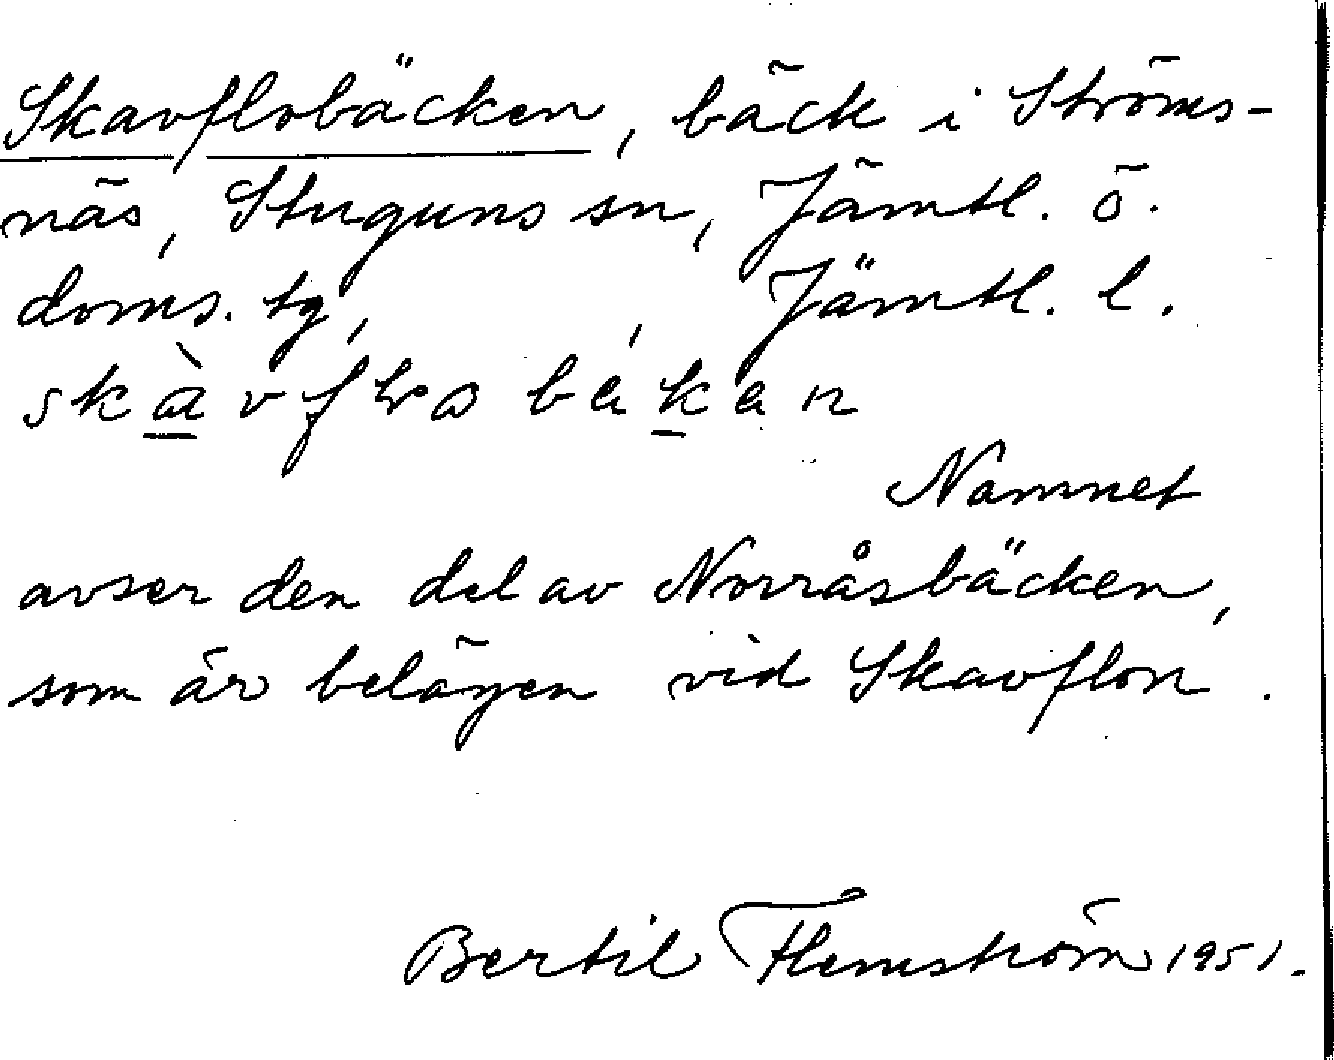 Skavflobäcken, bäck i Ströms-
näs, Stuguns sn, Jämtl. ö.
doms. tg, , Jämtl. l.
Namnet
avser den del av Norråsbäcken,
som är belägen vid Skavflon.
Bertil Flemström 1951.